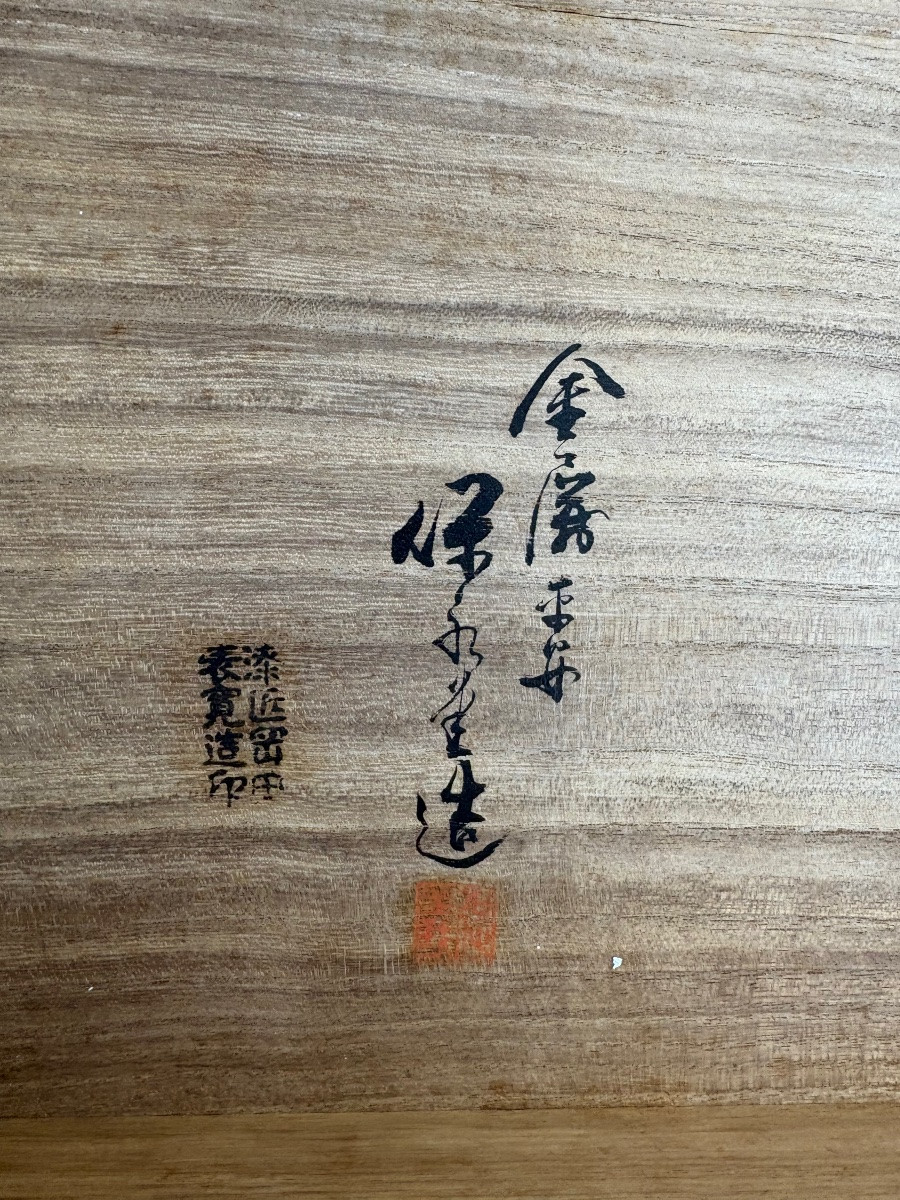 金屏 平安
保永堂造
漆匠岡田
表寛造印